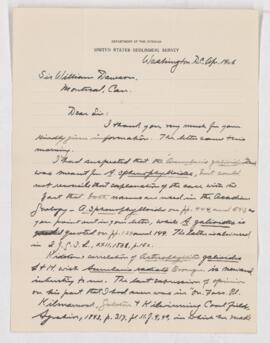 DEPARTMENT OF THE INTERIOR
UNITED STATES GEOLOGICAL SURVEY
Washington, D.C. Apr.
Sir William Dawson,
Montreal, Can.
Dear Sir:
I thank you very much for your
kindly given information. The letter came this
morning.
I had suspected that the
was meant for A. sphenophylloides, but could
not reconcile that explanation of the case with the
fact that both names are used in the Acadian
Geology - A. sphenophylloides on pp. and
you point out in your letter, while A. galioides is
quoted on pp. and 149. The latter is also used
in Q. J. G. S.
Kidston's correlation of Asterophyllites galioides
L & H. with Annularia radiata Brongn. is
interesting to me. The last expression of opinion
on his part that I had seen was in
Kilmarnock, Galston & Kilwinning Coal field,
Ayrshire, 1893, p. 317, in which he made